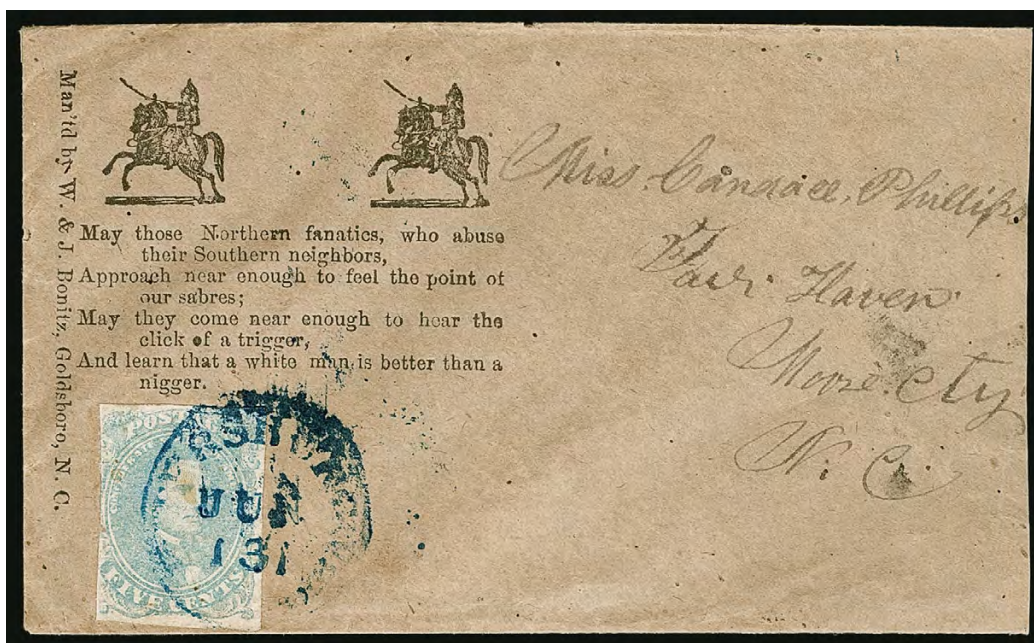 Man'td by W. & J. Bonitz, Goldsboro, N. C.
May those Northern fanatics, who abuse
their Southern neighbors,
Approach near enough to feel the point of
our sabres;
May they come near enough to hear the
click of a trigger,
And learn that a white man is better than a
nigger.
Miss. Candace, Phillips
Fair Haven
Moore Cty
N. C.
JUN
13
FIVE CENTS